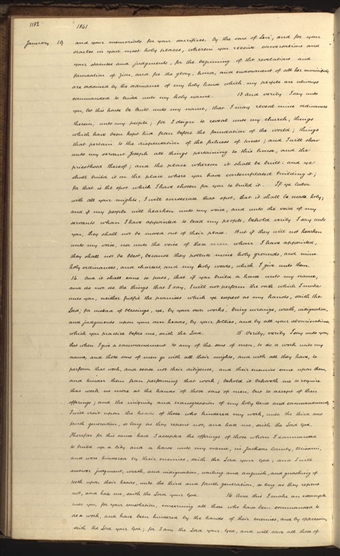 1182 1841
January 19 and your memorials for your sacrifices by the sons of Levi, and for your
oracles in your most holy places, wherein you receive conversations and
your statutes and judgments, for the beginning of the revelations and
foundation of Zion, and for the glory, honor, and endowment of all her municipals
are ordained by the ordinance of my holy house which my people are always
commanded to build unto my holy name. And verily I say unto
you, let this house be built unto my name, that I may reveal mine ordinances
therein, unto my people; for I deign to reveal unto my church, things
which have been kept hid from before the foundation of the world; things
that pertain to the dispensation of the fulness of times; and I will show
unto my servant Joseph all things pertaining to this house, and the
priesthood thereof; and the place whereon it shall be built; and ye
shall build it on the place where you have contemplated building it;
for that is the spot which I have chosen for you to build it. If ye labor
with all your mights, I will consecrate that spot, that it shall be made holy;
and if my people will hearken unto my voice, and unto the voice of my
servants whom I have appointed to lead my people, behold verily I say unto
you, they shall not be moved out of their place. But if they will not hearken
unto my voice, nor unto the voice of these men whom I have appointed,
they shall not be blest, because they pollute mine holy grounds, and mine
holy ordinances, and charters, and my holy words, which I give unto them.
And it shall come to pass, that if you build a house unto my name,
and do not do the things that I say, I will not perform the oath which I make
unto you, neither fulfil the promises which ye expect at my hands, saith the
Lord; for instead of blessings, ye, by your own works, bring cursings, wrath, indignation,
and judgments upon your own heads, by your follies, and by all your abominations
which you practice before me, saith the Lord. Verily, verily I say unto you
that when I give a commandment to any of the sons of men, to do a work unto my
name, and those sons of men go with all their mights, and with all they have, to
perform that work, and cease not their diligence, and their enemies come upon them
and hinder them from performing that work; behold it behoveth me to require
that work no more at the hands of those sons of men, but to accept of their
offerings; and the iniquity and transgression of my holy laws and commandments
I will visit upon the heads of those who hindered my work, unto the third and
fourth generation, so long as they repent not, and hate me, saith the Lord God.
Therefore for this cause have I accepted the offerings of those whom I commanded
to build up a city and a house unto my name, in Jackson County, Missouri,
and were hindered by their enemies, saith the Lord your God; and I will
answer judgment, wrath, and indignation, wailing and anguish, and gnashing of
teeth upon their heads, unto the third and fourth generation, so long as they repent
not, and hate me, saith the Lord your God. And this I make an example
unto you, for your consolation, concerning all those who have been commanded to
do a work, and have been hindered by the hands of their enemies, and by oppression,
saith the Lord your God; for I am the Lord your God, and will save all those of